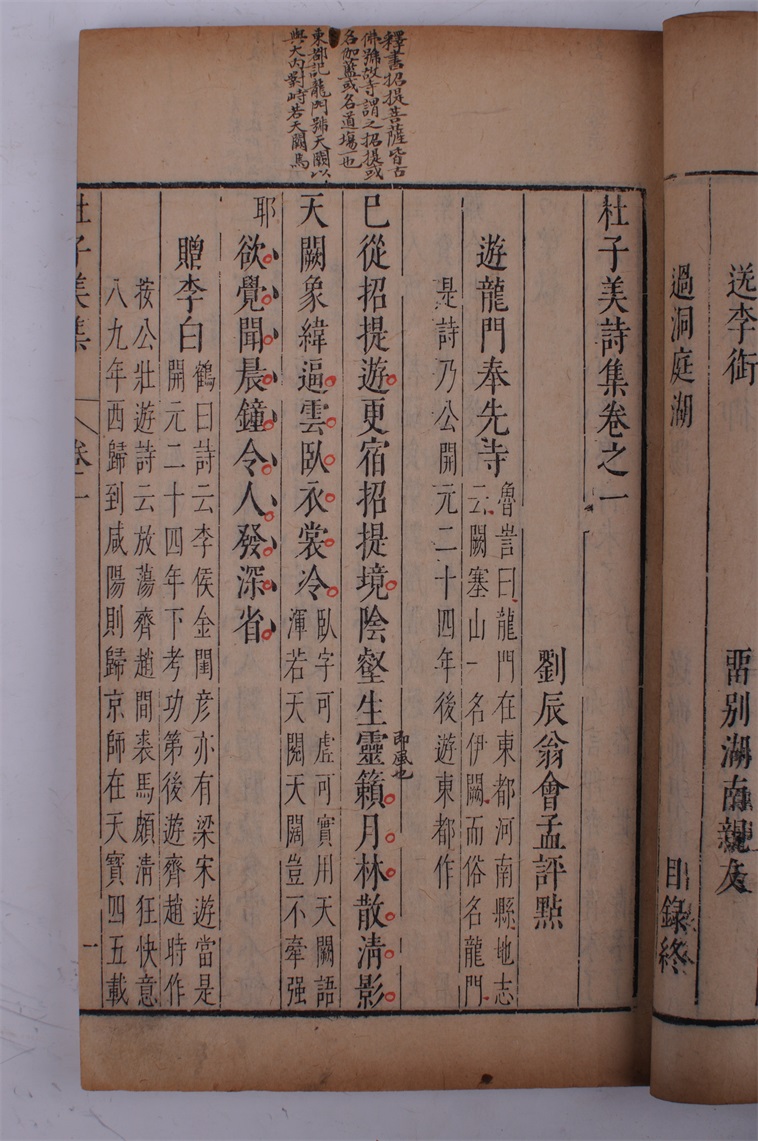 送李銜
畱別湖南親友
過洞庭湖
目錄終
釋書招提菩薩皆古
佛號故寺謂之招提或
名伽藍或名道場也
東都記龍門號天闕以
與大內對峙若天闕焉
杜子美詩集卷之一
劉辰翁會孟評點
遊龍門奉先寺
魯訔曰龍門在東都河南縣地志
云闕塞山一名伊闕而俗名龍門
是詩乃公開元二十四年後遊東都作
已從招提遊更宿招提境陰壑生靈籟月林散清影
即風也
天闕象緯逼雲臥衣裳冷
臥字可虛可實用天闕語
渾若天閱天闊豈不牽强
耶
欲覺聞晨鐘令人發深省
贈李白
鶴曰詩云李侯金閨彥亦有梁宋遊當是
開元二十四年下考功第後遊齊趙時作
按公壯遊詩云放蕩齊趙間裘馬頗清狂快意
八九年西歸到咸陽則歸京師在天寶四五載
杜子美集
卷一
一